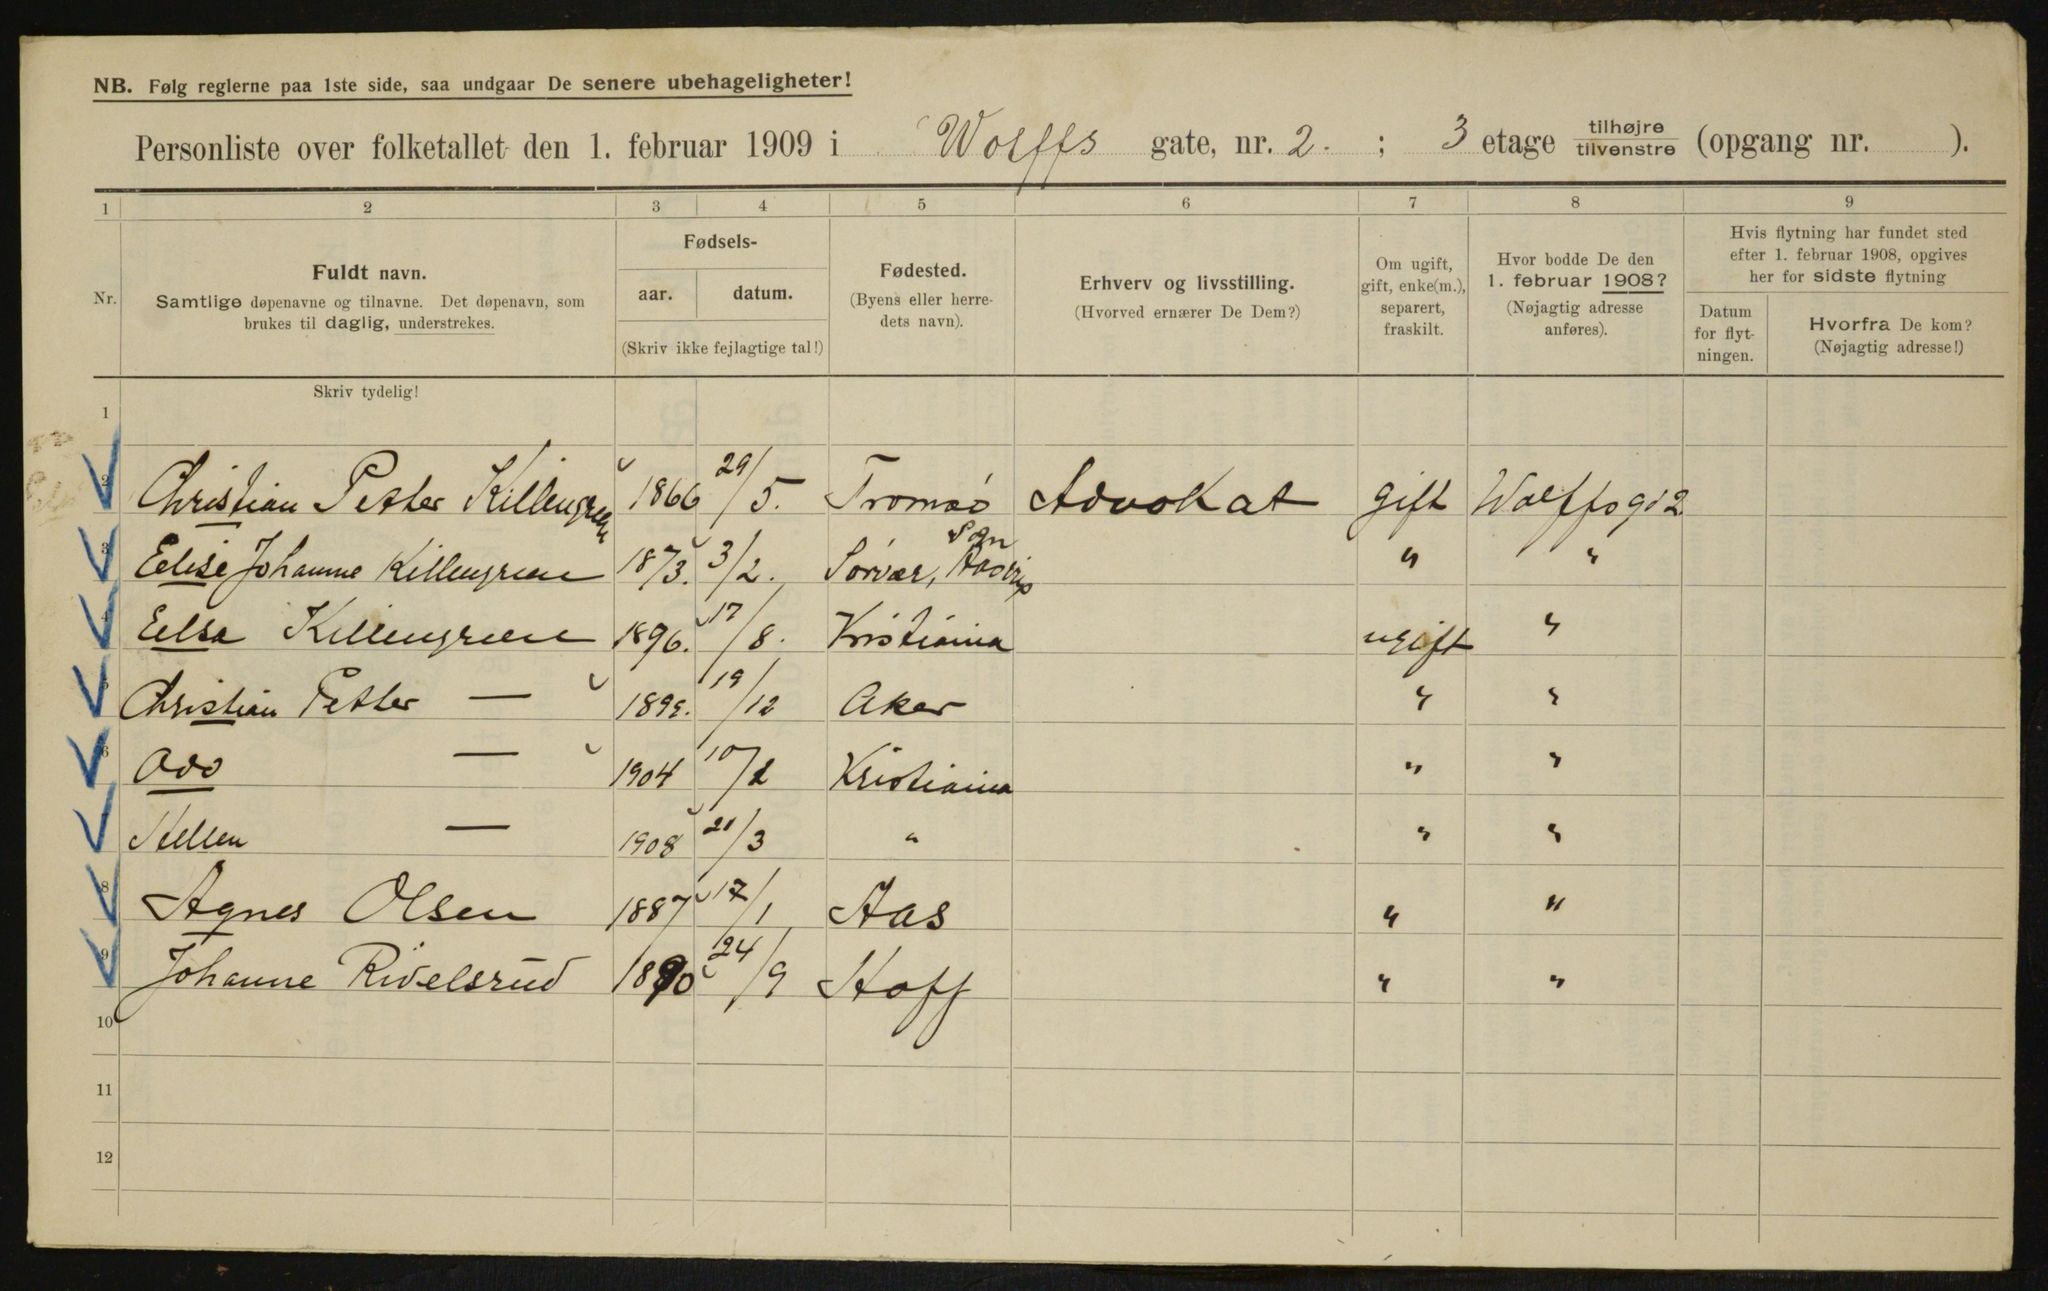 NB. Følg reglerne paa 1ste side, saa undgaar De senere ubehageligheter!
Personliste over folketallet den 1. februar 1909 i Wolffs gate, nr. 2. ; 3 etage tilhøjre tilvenstre (opgang nr. ).
1 2 3 4 5 6 7 8 9
Nr. Fuldt navn. Samtlige døpenavne og tilnavne. Det døpenavn, som brukes til daglig, understrekes.
Fødsels- aar. datum. (Skriv ikke fejlagtige tal!)
Fødested. (Byens eller herredets navn).
Erhverv og livsstilling. (Hvorved ernærer De Dem?)
Om ugift, gift, enke(m.), separert, fraskilt.
Hvor bodde De den 1. februar 1908? (Nøjagtig adresse anføres).
Hvis flytning har fundet sted efter 1. februar 1908, opgives her for sidste flytning
Datum for flytningen. Hvorfra De kom? (Nøjagtig adresse!)
Skriv tydelig!
1
2 Christian Petter Killengreen 1866 29/5. Tromsø Advokat gift Wolffsg 2
3 Elise Johanne Killengreen 1873. 3/2. Sørvær, " "
4 Elsa Killengreen 1896. 17/8. Kristiania ugift "
5 Christian Petter — 1899. 19/12 Aker " "
6 Odd — 1904 10/2 Kristiania " "
Hellen — 1908 21/3 " " "
8 Agnes Olsen 1887 17/1 Aas " "
9 Johanne Ridelsrud 1890 24/9 Hoff " "
10
11
12